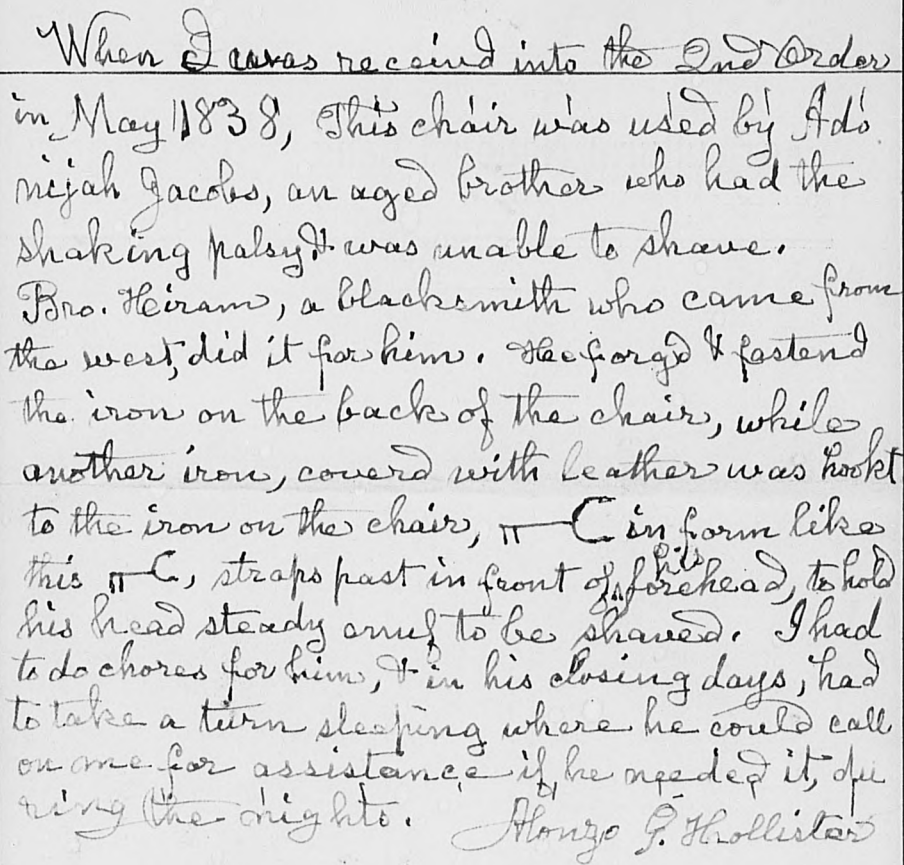 When I was receivd into the 2nd Order
in May 1838, This chair was used by Ado
nijah Jacobs, an aged brother who had the
shaking palsy & was unable to shave.
Bro. Hiram, a blacksmith who came from
the west, did it for him. He forgd & fastend
the iron on the back of the chair, while
another iron, coverd with leather was hookt
to the iron on the chair, in form like
this, straps past in front of his forehead, to hold
his head steady enuf to be shaved. I had
to do chores for him, & in his closing days, had
to take a turn sleeping where he could call
on me for assistance if he needed it, du
ring the nights. Alonzo G. Hollister